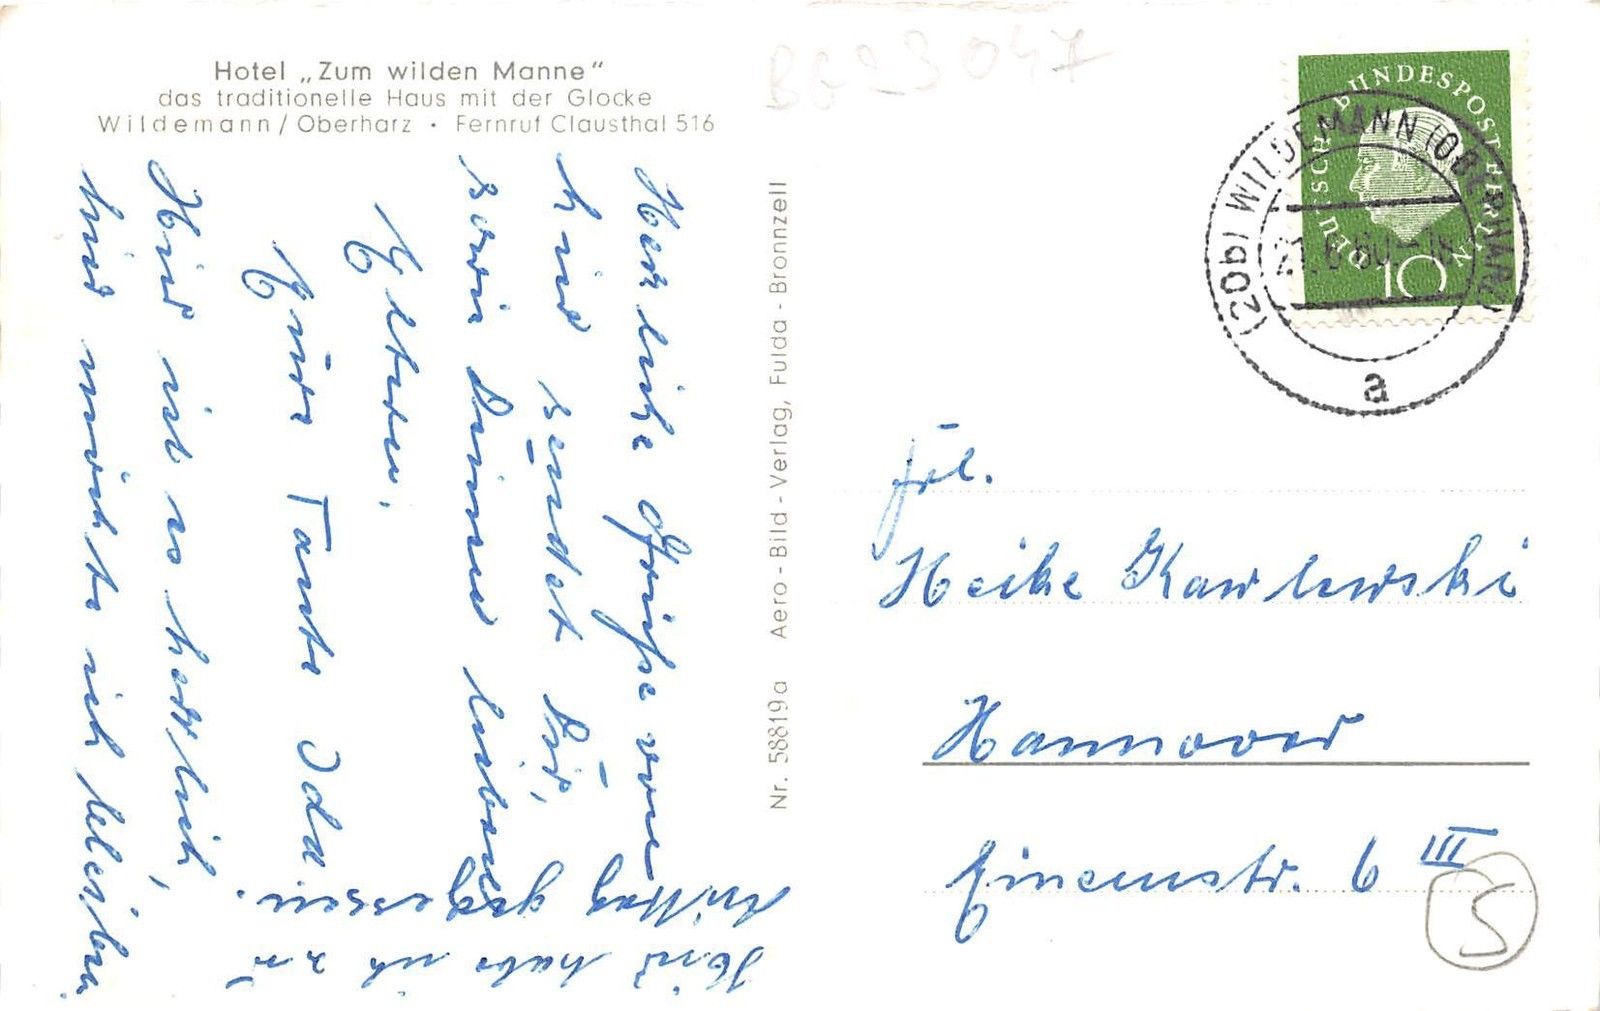 Hotel „Zum wilden Manne“
das traditionelle Haus mit der Glocke
Wildemann/Oberharz · Fernruf Clausthal 516
Herzliche Grüße von
hier sendet Dir,
sowie Deinen lieben
Eltern,
Eure Tante Ida.
Hier ist es herrlich,
hier möchte ich bleiben
Hier habe ich zu
Mittag gegessen.
Nr. 58819a Aero-Bild-Verlag, Fulda-Bronnzell
BG23047
DEUTSCHE BUNDESPOST BERLIN
10
(20b) WILDEMANN (OBERHARZ)
a
Frl.
Heike Kawlewski
Hannover
Einemstr. 6 III
S